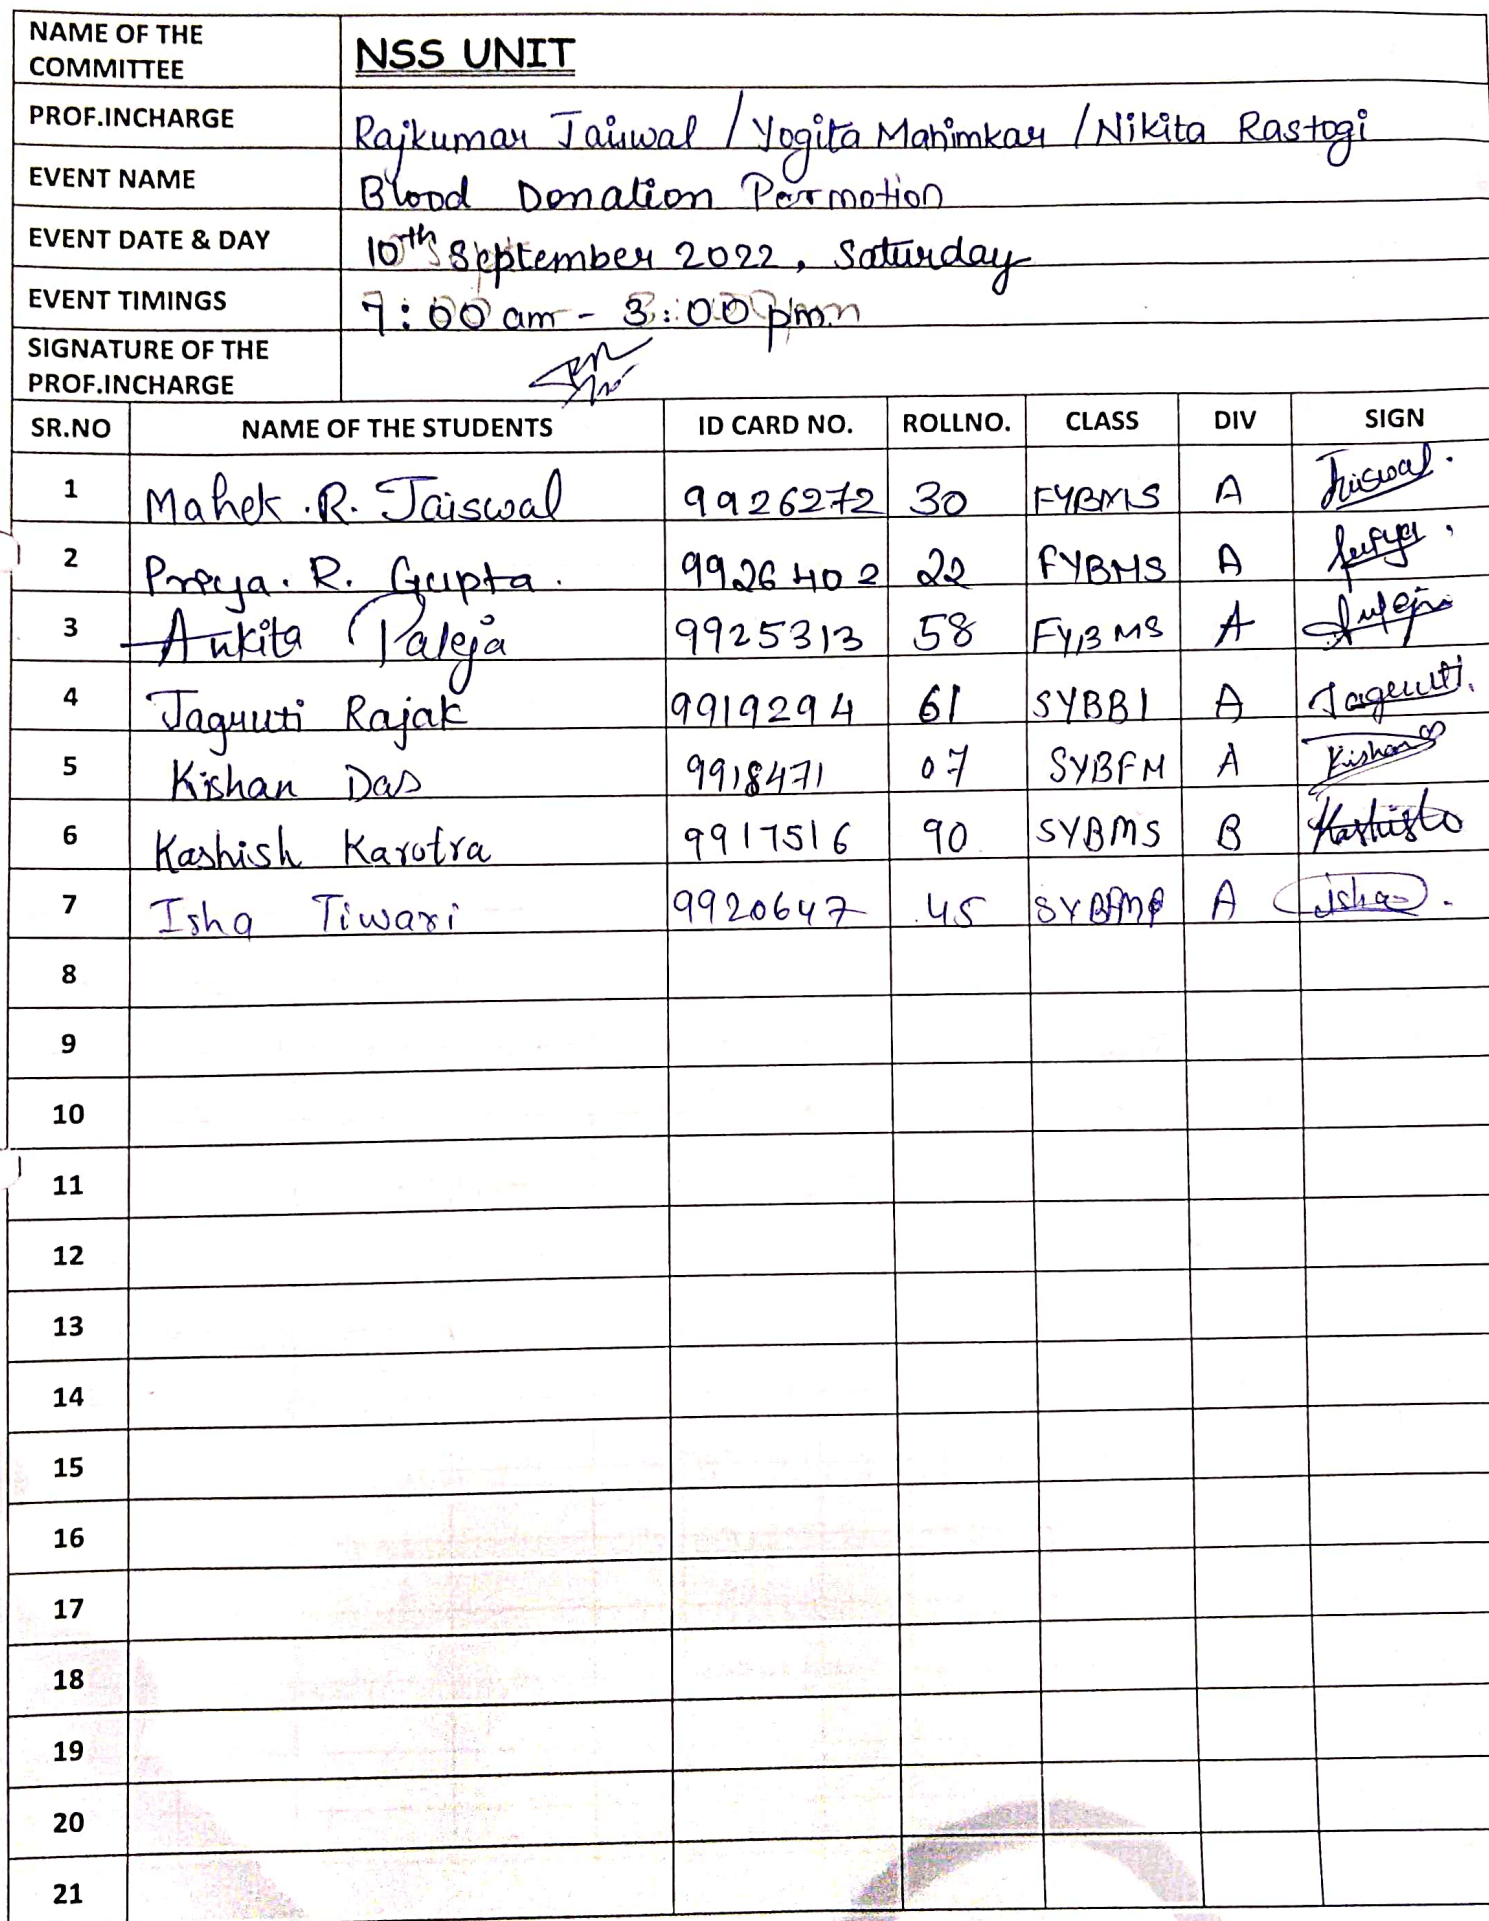 NAME OF THE COMMITTEE NSS UNIT
PROF.INCHARGE Rajkumar Jaiswal / Yogita Mahimkar / Nikita Rastogi
EVENT NAME Blood Donation Permotion
EVENT DATE & DAY 10th September 2022, Saturday
EVENT TIMINGS 7:00 am - 3:00 pm
SIGNATURE OF THE PROF.INCHARGE
SR.NO NAME OF THE STUDENTS ID CARD NO. ROLLNO. CLASS DIV SIGN
1 Mahek .R. Jaiswal 9926272 30 FYBMS A Jaiswal.
2 Priya. R. Gupta. 9926402 22 FYBMS A
3 Ankita Paleja 9925313 58 FYBMS A
4 Jagruti Rajak 9919294 61 SYBBI A Jagruti.
5 Kishan Das 9918471 07 SYBFM A Kishan
6 Kashish Karotra 9917516 90 SYBMS B
7 Isha Tiwari 9920647 45 A Isha
8
9
10
11
12
13
14
15
16
17
18
19
20
21